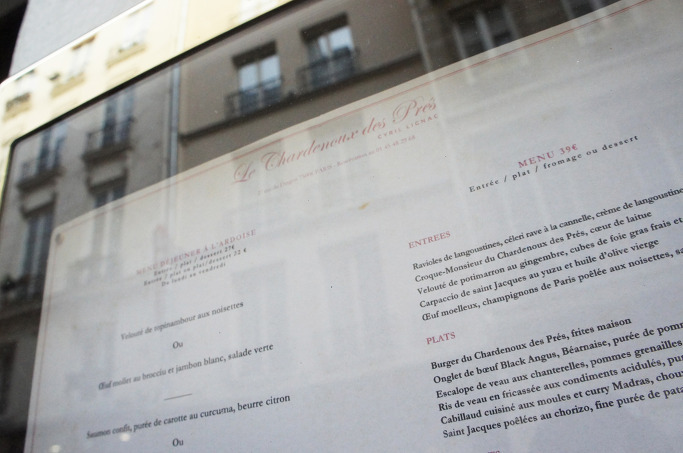 Le Chardenoux des Prés
CYRIL LIGNAC
MENU DÉJEUNER À L'ARDOISE
Entrée / plat / dessert 27€
Entrée / plat ou plat/dessert 22 €
Du lundi au vendredi
Velouté de topinambour aux noisettes
Ou
Œuf mollet au brocciu et jambon blanc, salade verte
Saumon confit, purée de carotte au curcuma, beurre citron
Ou
MENU 39€
Entrée / plat / fromage ou dessert
ENTREES
Ravioles de langoustines, céleri rave à la cannelle, crème de langoustine
Croque-Monsieur du Chardenoux des Prés, cœur de laitue
Velouté de potimarron au gingembre, cubes de foie gras frais et
Carpaccio de saint Jacques au yuzu et huile d'olive vierge
Œuf moelleux, champignons de Paris poêlée aux noisettes,
PLATS
Burger du Chardenoux des Prés, frites maison
Onglet de bœuf Black Angus, Béarnaise, purée de
Escalope de veau aux chanterelles, pommes grenailles
Ris de veau en fricassée aux condiments acidulés,
Cabillaud cuisiné aux moules et curry Madras,
Saint Jacques poêlées au chorizo, fine purée de